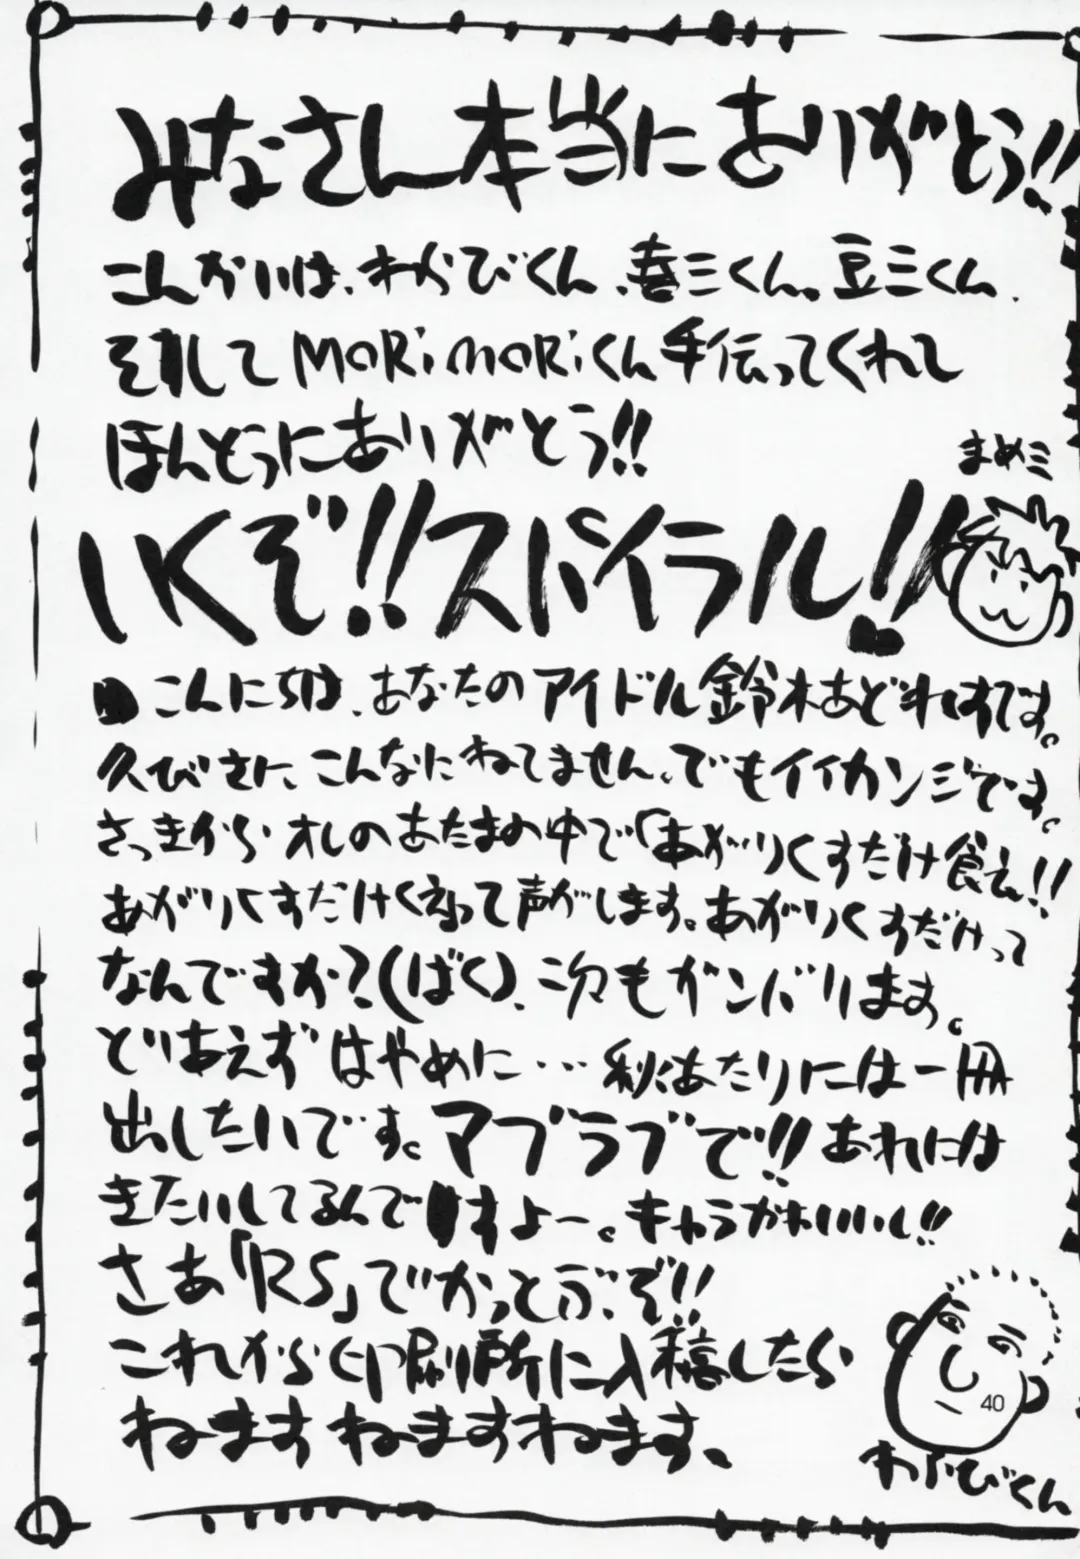 みなさん本当にありがとう!!
こんかいは、わらびくん、喜三くん。豆三くん、
そして MORiMORiくん手伝ってくれて
ほんとうにありがとう!!
まめミ
いくぞ!!スパイラル!!
こんにちは、あなたのアイドル鈴木あどれすです。
久びさに、こんなにねてません、でもイイカンジです。
さっきから オレのあたまの中で「あがりくすだけ食え!!
あがりくすだけくえって声がします。あがりくすだけって
なんですか?(ばく)、次もガンバリます。
とりあえず はやめに… 秋あたりには一冊
出したいです。マブラブで!!あれには
きたいしてるんですよー。キャラかわいいし!!
さあ「RS」でかっとぶぞ!!
これから印刷所に入稿したら
ねます ねますねます、
40
わらびくん